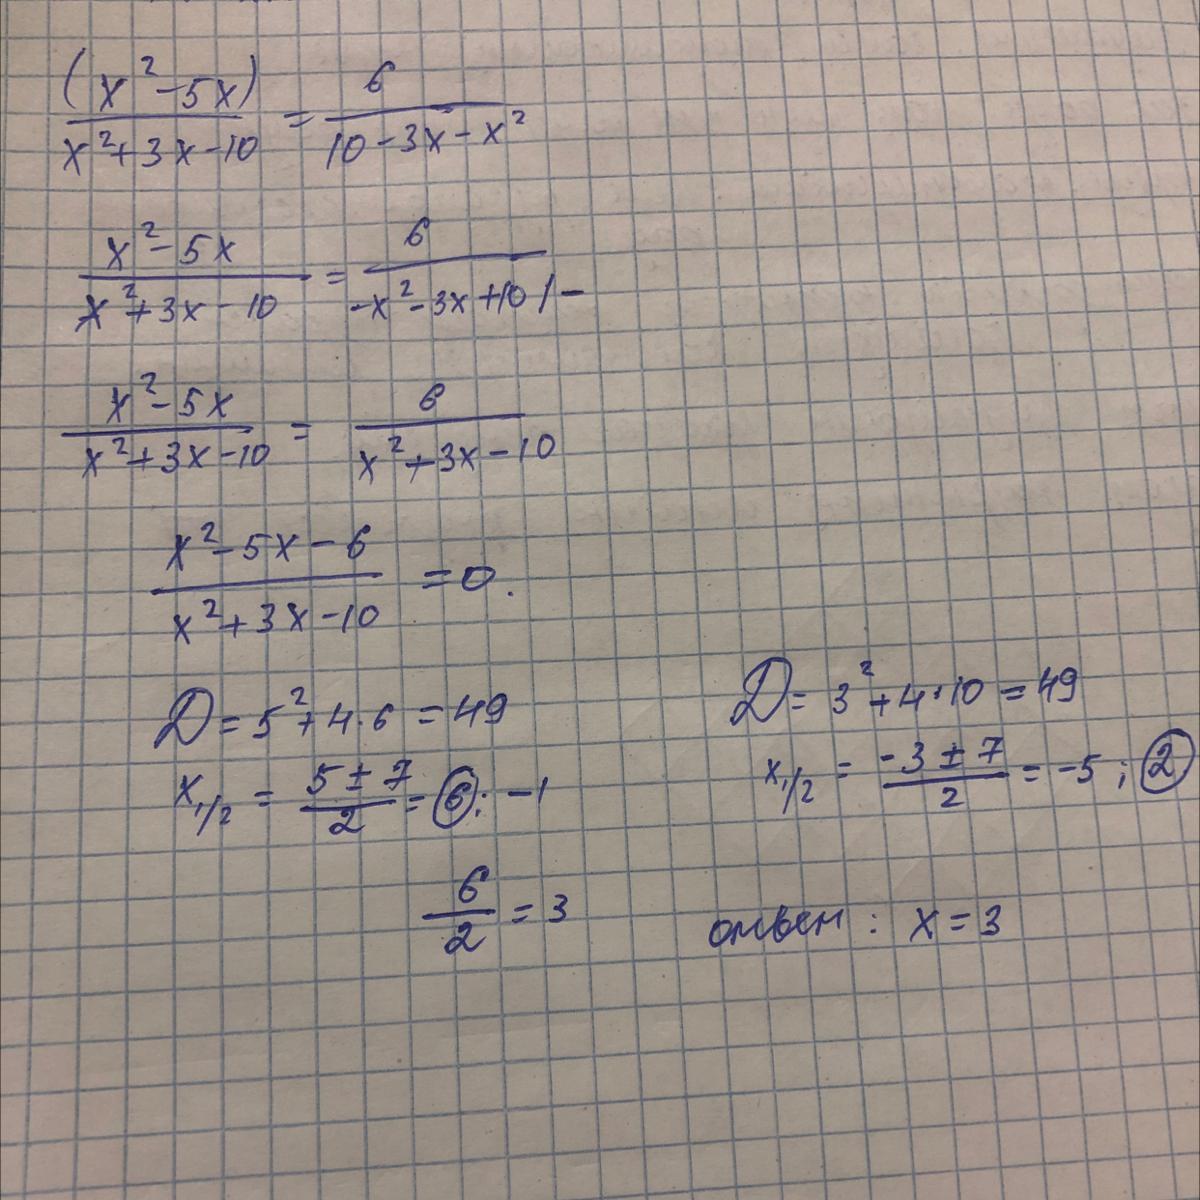 (x² - 5x) / (x² + 3x - 10) = 6 / (10 - 3x - x²)
(x² - 5x) / (x² + 3x - 10) = 6 / (-x² - 3x + 10) / -
(x² - 5x) / (x² + 3x - 10) = 6 / (x² + 3x - 10)
(x² - 5x - 6) / (x² + 3x - 10) = 0.
D = 5² + 4·6 = 49
x₁/₂ = (5 ± 7) / 2 = 6; -1
D = 3² + 4·10 = 49
x₁/₂ = (-3 ± 7) / 2 = -5; 2
6/2 = 3
ответ: x = 3